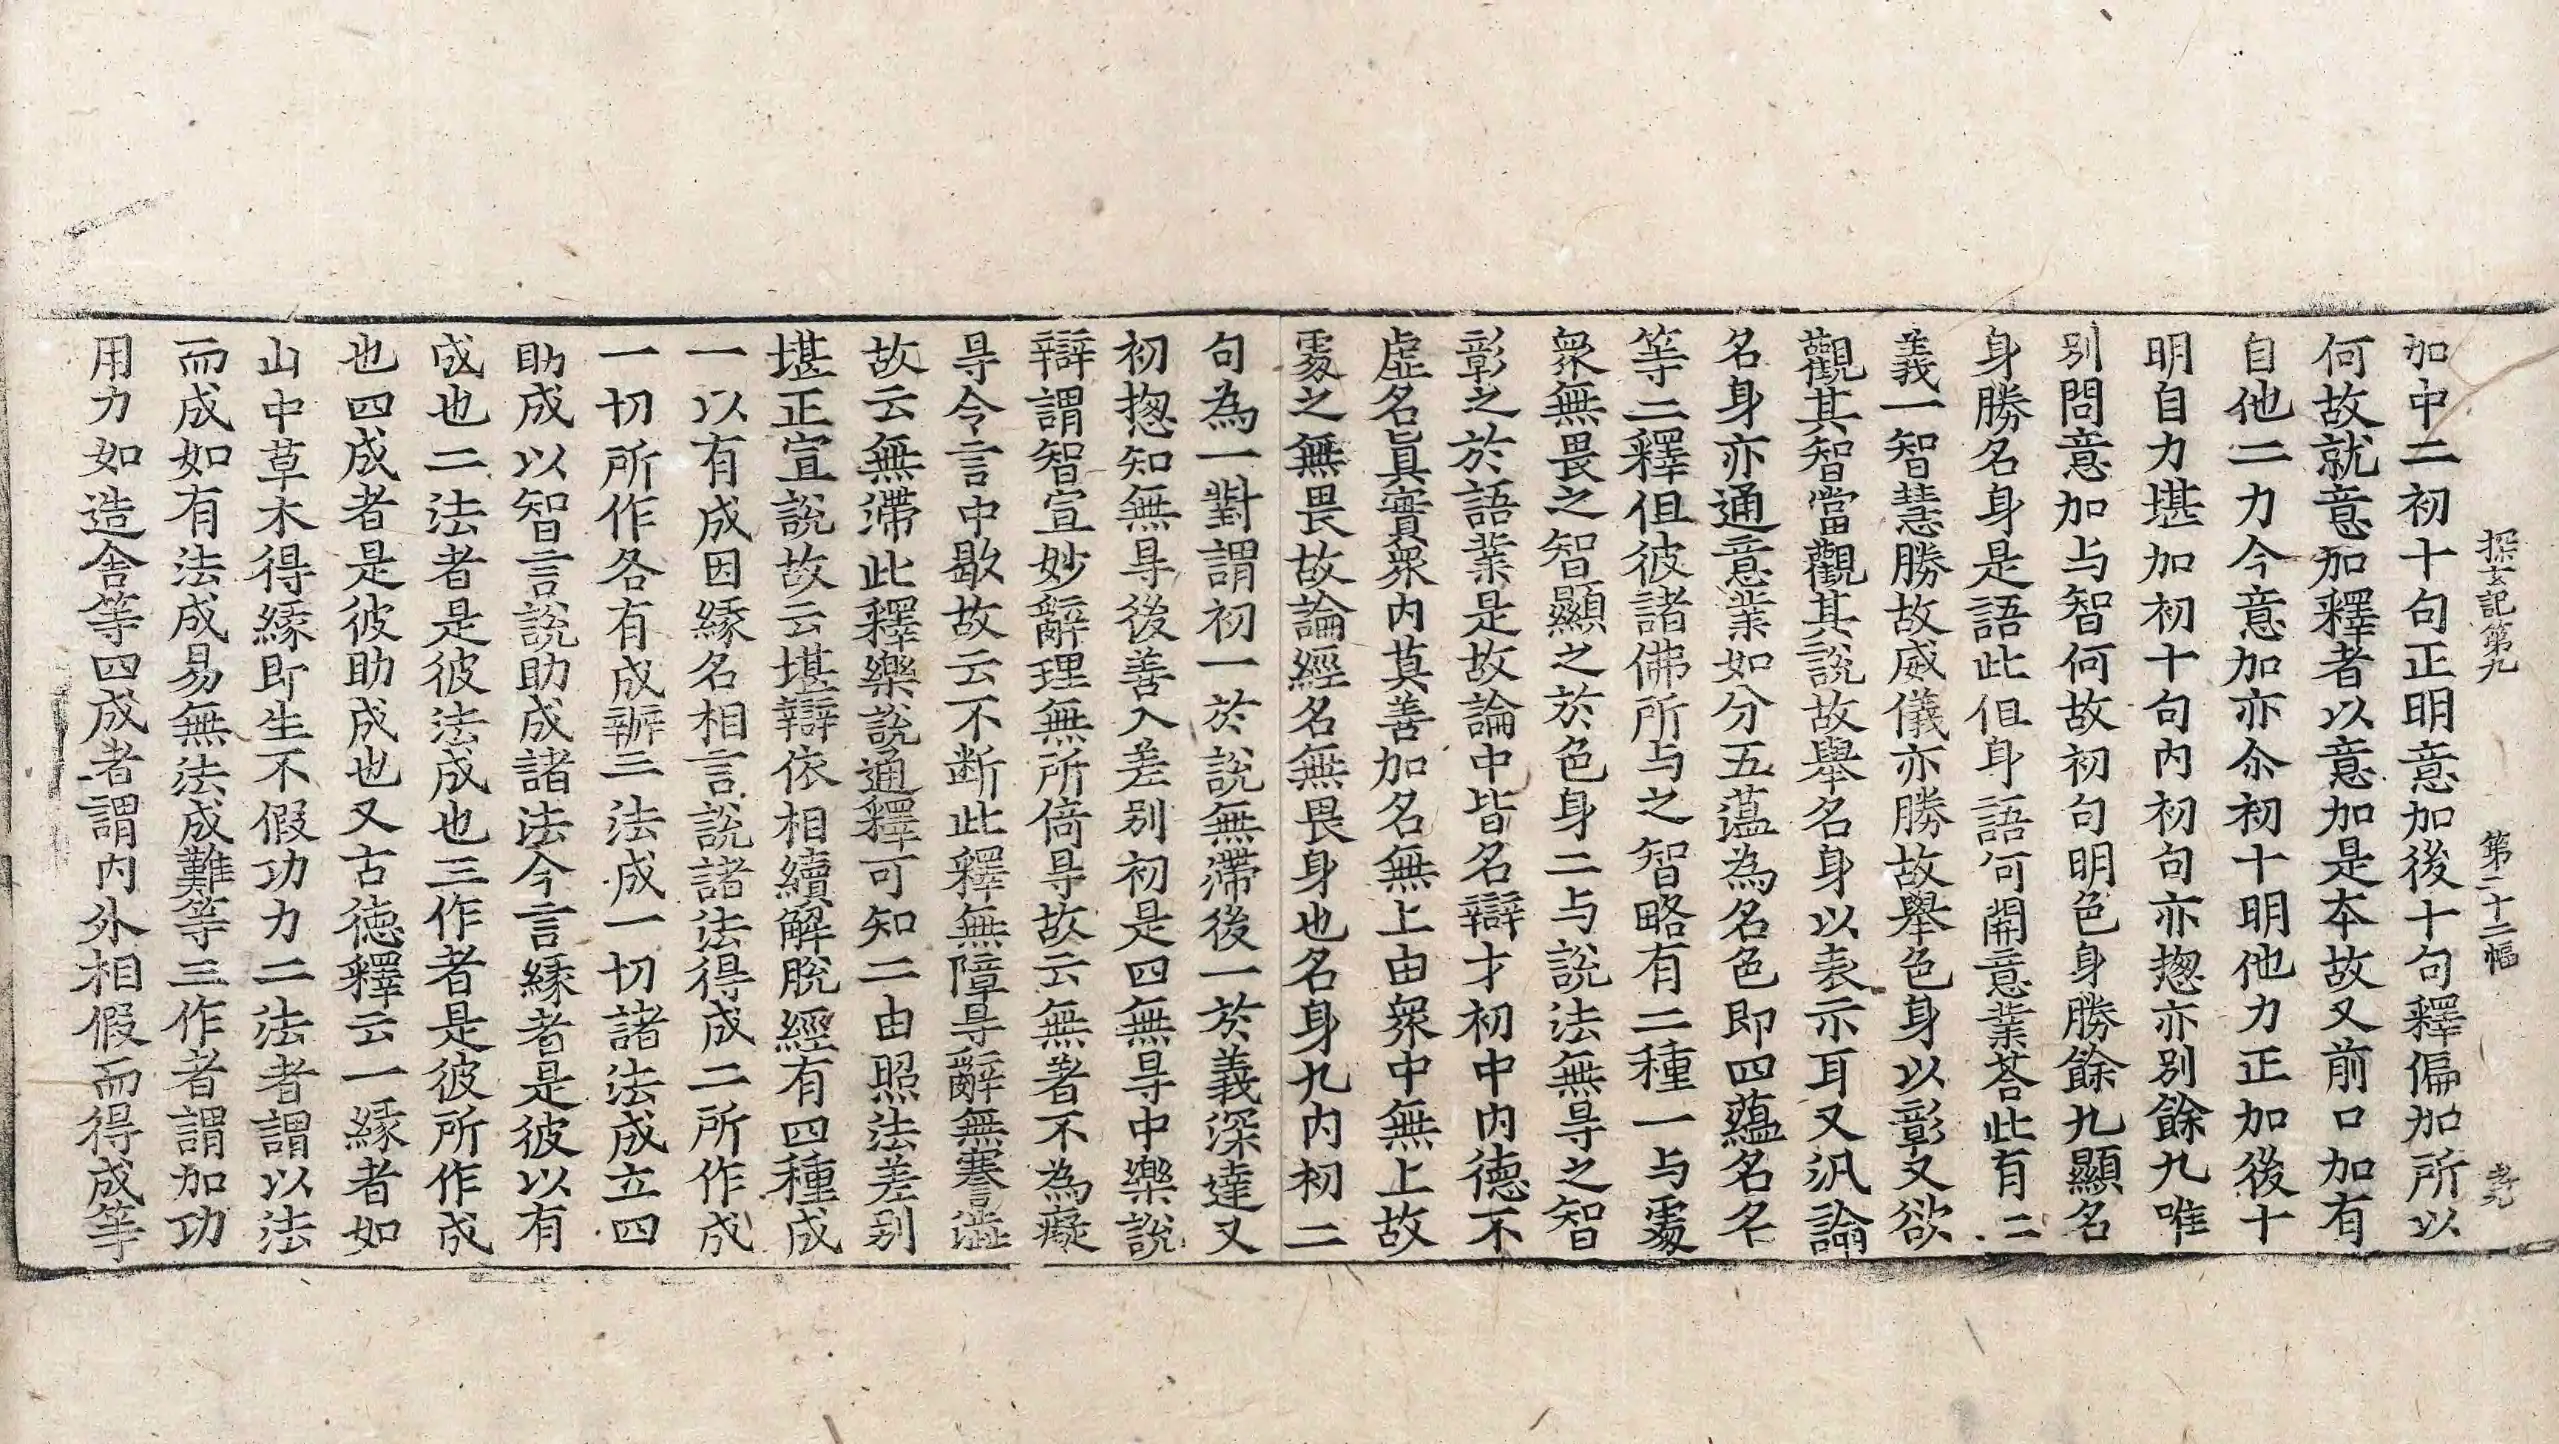 探玄記第九 第二十二幅 孝元
加中二初十句正明意加後十句釋偏加所以
何故就意加釋者以意加是本故又前口加有
自他二力今意加亦尒初十明他力正加後十
明自力堪加初十句内初句亦揔亦別餘九唯
別問意加与智何故初句明色身勝餘九顯名
身勝名身是語此但身語何開意業荅此有二
義一智慧勝故威儀亦勝故舉色身以彰又欲
觀其智當觀其說故舉名身以表示耳又汎論
名身亦通意業如分五蕰為名色即四蘊名名
等二釋但彼諸佛所与之智略有二種一与䖏
衆無畏之智顯之於色身二与說法無㝵之智
彰之於語業是故論中皆名辯才初中内德不
虛名眞實衆内莫善加名無上由衆中無上故
䖏之無畏故論經名無畏身也名身九内初二
句為一對謂初一於說無滯後一於義深達又
初揔知無㝵後善入差別初是四無㝵中樂說
辯謂智宣妙辭理無所倚㝵故云無著不為癡
㝵令言中歇故云不断此釋無障㝵辭無謇澁
故云無滯此釋樂說通釋可知二由照法差别
堪正宣說故云堪辯依相續解脫經有四種成
一以有成因緣名相言說諸法得成二所作成
一切所作各有成辦三法成一切諸法成立四
助成以智言說助成諸法今言緣者是彼以有
成也二法者是彼法成也三作者是彼所作成
也四成者是彼助成也又古德釋云一緣者如
山中草木得緣即生不假功力二法者謂以法
而成如有法成易無法成難等三作者謂加功
用力如造舍等四成者謂内外相假而得成等